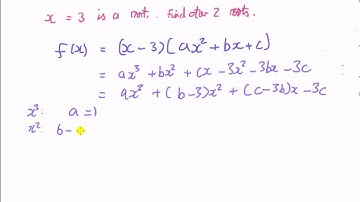 x = 3 is a root. Find other 2 roots.
f(x) = (x-3)(ax² + bx + c)
= ax³ + bx² + cx - 3x² - 3bx - 3c
= ax³ + (b-3)x² + (c-3b)x - 3c
x³: a = 1
x²: b -